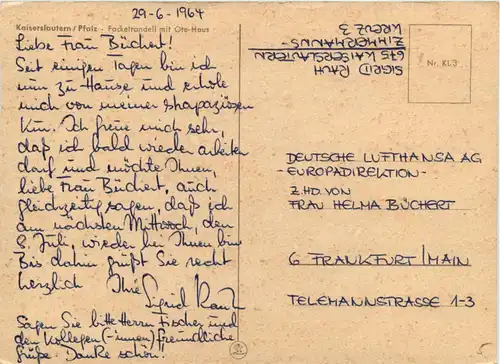 29-6-1964
Kaiserslautern / Pfalz - Fackelrondell mit Ote-Haus
Liebe Frau Büchert!
Seit einigen Tagen bin ich
nun zu Hause und erhole
mich von meiner strapaziösen
Kur. Ich freue mich sehr,
daß ich bald wieder arbeiten
darf und möchte Ihnen,
liebe Frau Büchert, auch
gleichzeitig sagen, daß ich
am nächsten Mittwoch, den
8. Juli, wieder bei Ihnen bin
Bis dahin grüßt Sie recht
herzlich Ihre Sigrid Rach
Sagen Sie bitte Herrn Fischer und
den Kollegen (-innen) freundliche
Grüße. Danke schön!
SIGRID RACH
675 KAISERSLAUTERN
ZIMMERMANNS-
KREUZ 3
Nr. Kl.3
DEUTSCHE LUFTHANSA AG
-EUROPADIREKTION-
Z.HD.VON
FRAU HELMA BÜCHERT
6 FRANKFURT/MAIN
TELEMANNSTRASSE 1-3